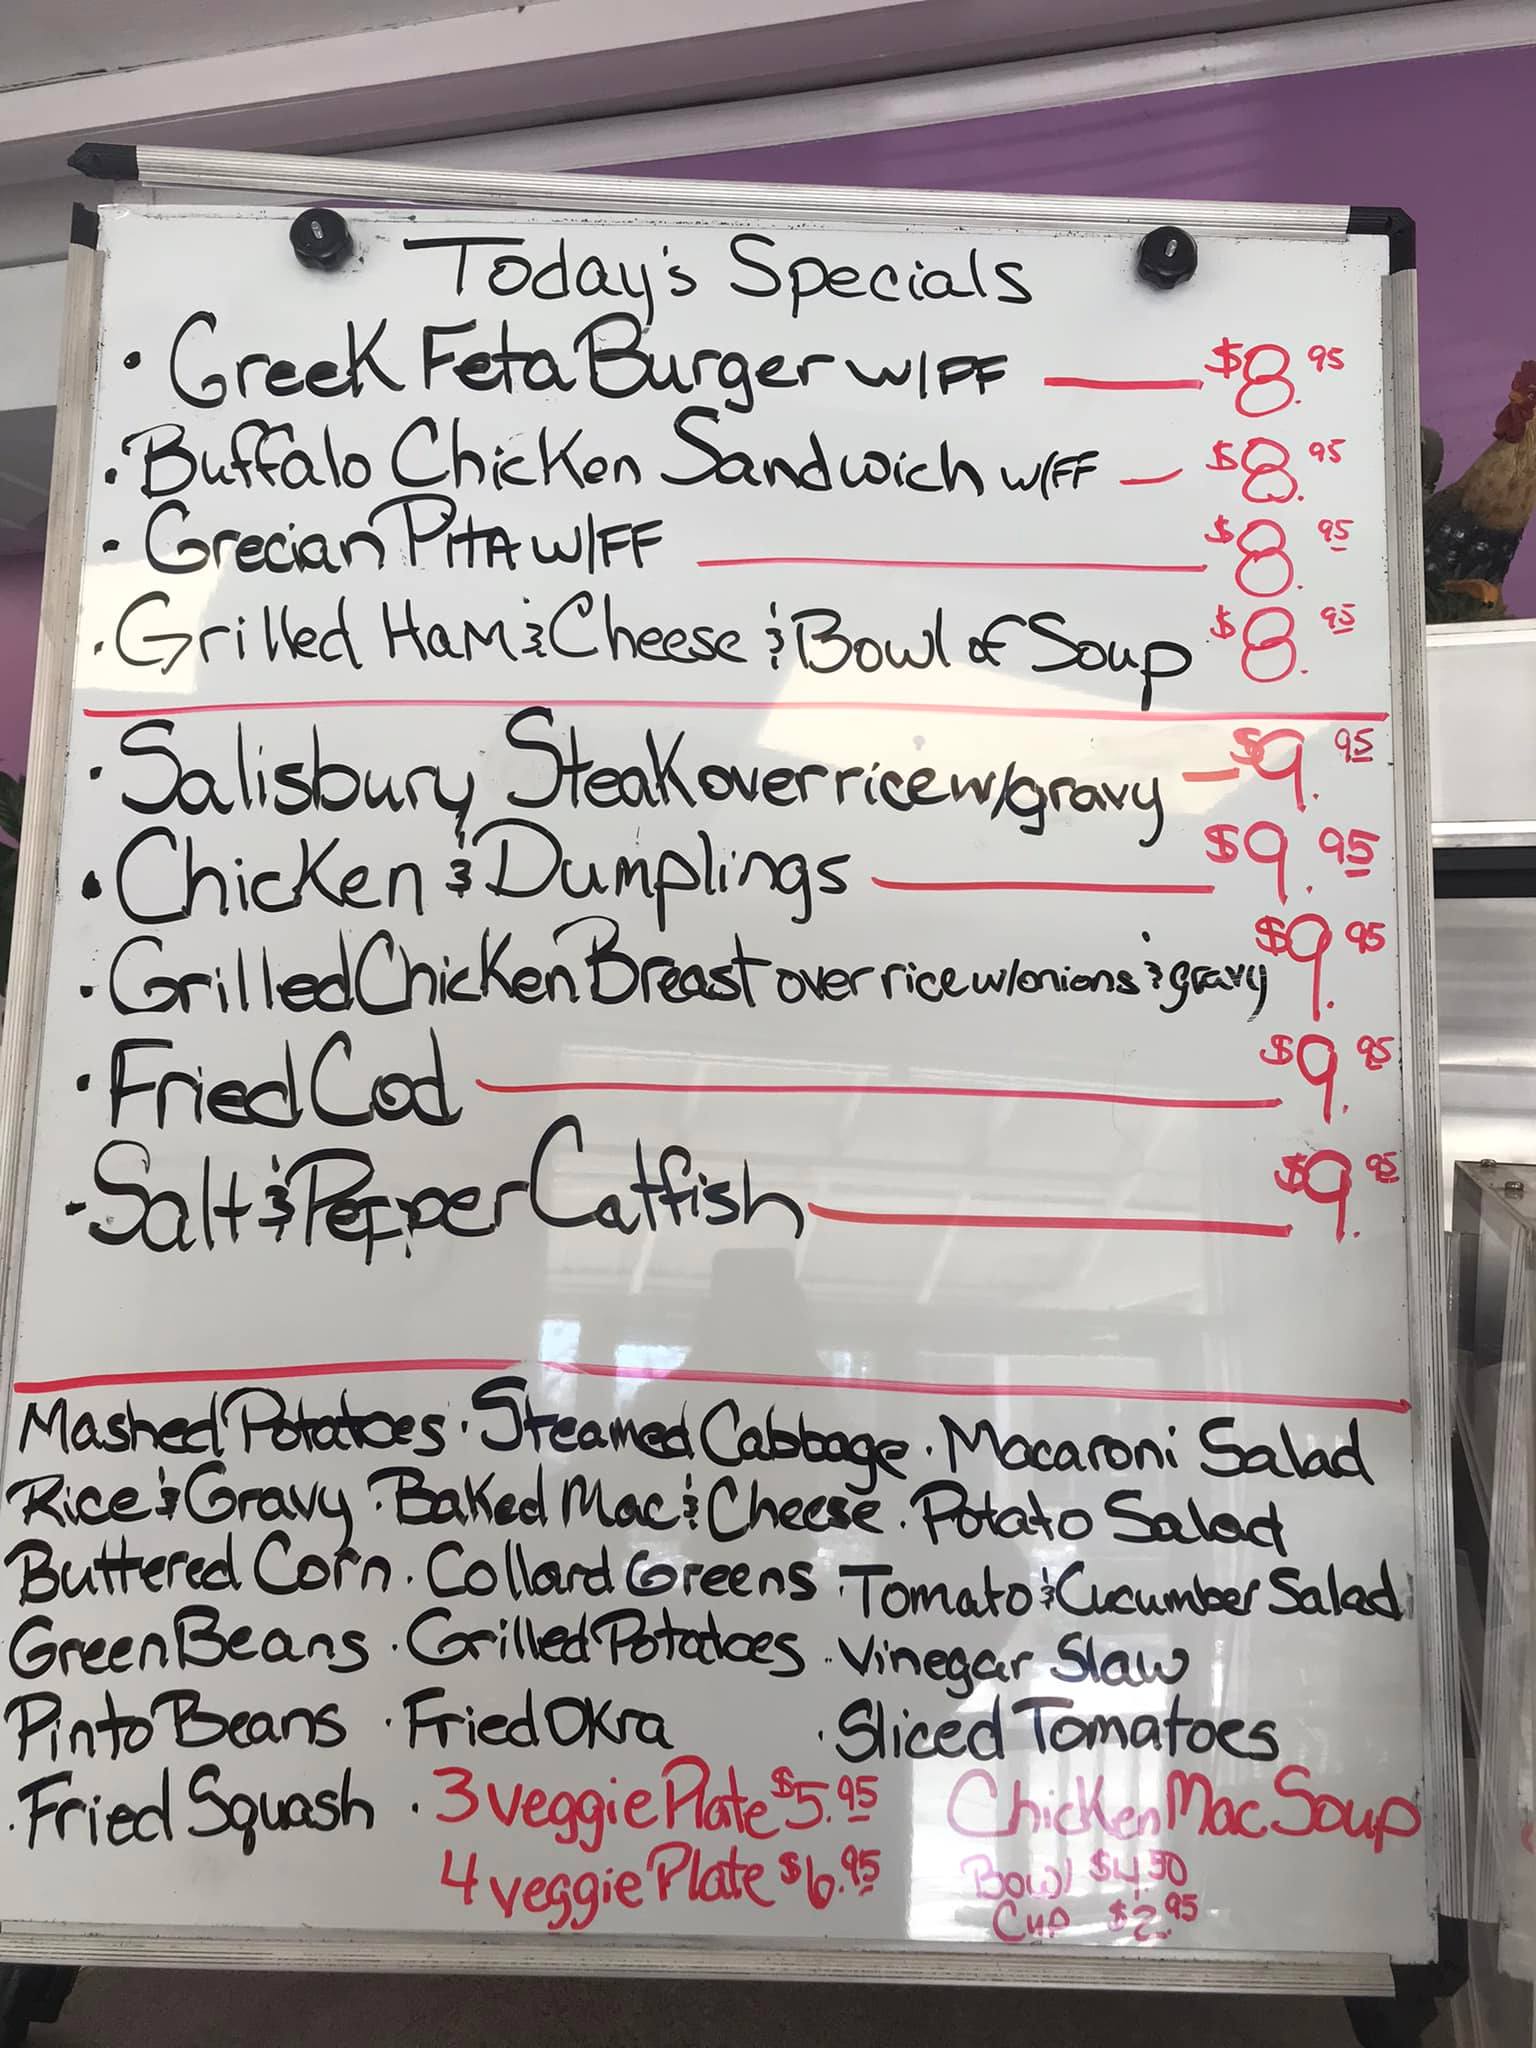 Today's Specials
· Greek Feta Burger w/FF $8.95
· Buffalo Chicken Sandwich w/FF $8.95
· Grecian PitA w/FF $8.95
· Grilled Ham & Cheese & Bowl of Soup $8.95
· Salisbury Steak over rice w/gravy $9.95
· Chicken & Dumplings $9.95
· Grilled Chicken Breast over rice w/onions & gravy $9.95
· Fried Cod $9.95
· Salt & Pepper Catfish $9.95
Mashed Potatoes · Steamed Cabbage · Macaroni Salad
Rice & Gravy · Baked Mac & Cheese · Potato Salad
Buttered Corn · Collard Greens · Tomato & Cucumber Salad
Green Beans · Grilled Potatoes · Vinegar Slaw
Pinto Beans · Fried Okra · Sliced Tomatoes
· Fried Squash · 3 veggie Plate $5.95 Chicken Mac Soup
4 veggie Plate $6.95 Bowl $4.50
Cup $2.95